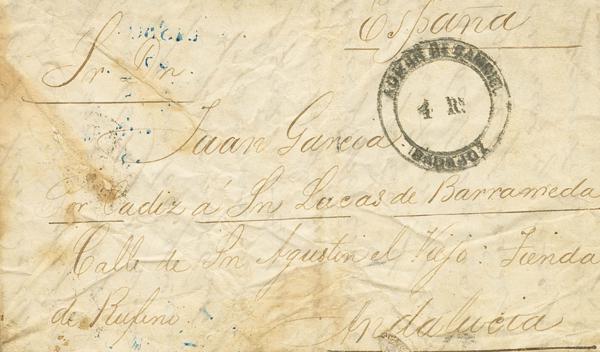 España
Sr. Dn.
4 Rs.
BADAJOZ
Juan Garcia
Por Cadiz á Sn Lucas de Barrameda
Calle de Sn Agustin el Viejo. Tienda
de Rufino
Andalucia